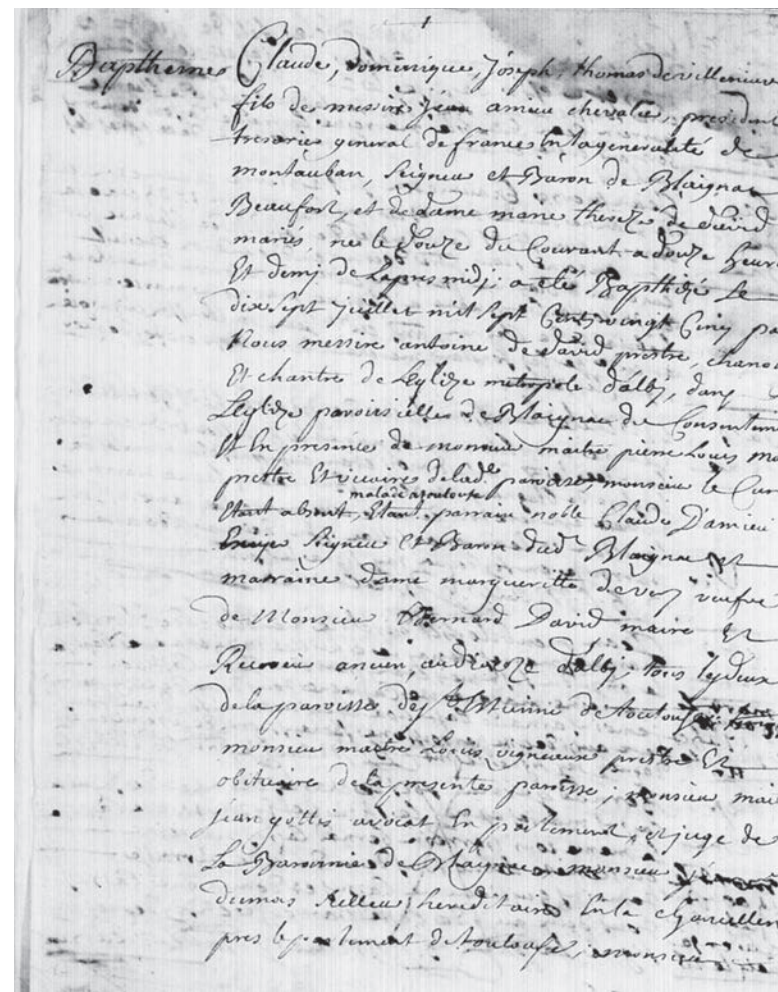 1
Bapthemes Claude, dominique, Joseph, thomas de villeneuve
fils de messire jean amieu chevalier, president
tresorier general de france En la generalité de
montauban, Seigneur et Baron de Blaignac
Beaufort, et de dame marie thereze de david
mariés, ne le douze du Courant a douze heure
Et demj de lapres midj; a eté Bapthizé Le
dix sept juillet mil sept Cents vingt Cinq pa
Nous messire antoine de david prestre, chanoi
Et chantre de Leglize metropole d'alby, dans
Leglize paroissielle de Blaignac du Consentem
Et En presence de monsieur maitre pierre Louis ma
prestre Et vicaire de lad. paroisse, monsieur le Cur
malade a toulouse
Etant absent, Etant parrain noble Claude D'amieu
Seigneur Et Baron dud. Blaignac et
marraine dame margueritte de veufve
de Monsieur Bernard David maire Et
Receveur ancien, au dioceze d'alby, tous les deux
de la paroisse de st. Etienne de toulouse
monsieur maitre Louis vigneaux prestre Et
obituaire de la presente paroisse; monsieur mait
jean gottis avocat En parlement, et juge de
La Baronnie de Blaignac monsieur
dumas hereditaire En la chancellerie
pres le parlement de toulouse, monsieur